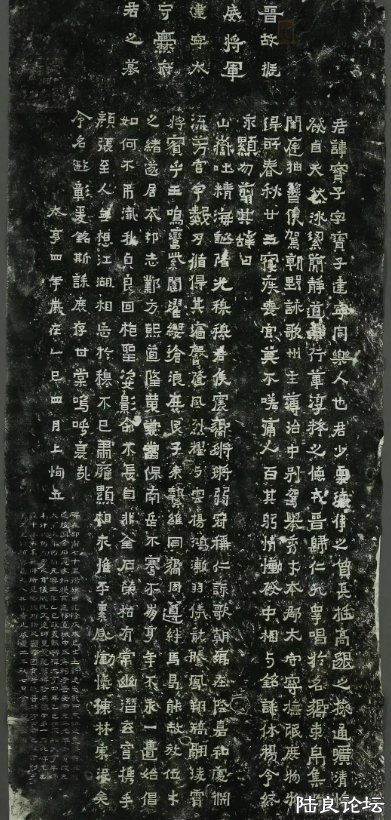 晉故振
威將軍
建寧太
守爨府
君之墓
君諱寶子字寶子建寧同樂人也君少稟瓌偉之質長挺高邈之操通曠清恪
發自天然冰絜簡靜道兼行葦淳粹之德戎晉歸仁九皋唱於名嚮束帛集於
閨庭抽簪俟駕朝野詠歌州主簿治中別駕舉秀才本郡太守寧撫氐庶物物
得所春秋廿三寢疾喪官莫不嗟痛人百其躬情慟發中相與銘誄休揚令終
永顯勿翦其辭曰
山嶽吐精海誕陲光穆穆君侯震響鏘鏘弱冠稱仁詠歌朝鄉在陰嘉和處淵
流芳宮宇數仞循得其墻馨隨風烈耀與雲揚鴻漸羽儀龍騰鳳翔矯翮凌霄
將賓乎王鳴鸞紫闥濯纓滄浪庶民子來縶維同嚮周遵絆馬曷能赦放位才
之緒遂居本邦志鄴方熙道隆黃裳當保南岳不騫不崩享年不永一匱始倡
如何不弔殲我貞良回抱聖姿影命不長自非金石榮枯有常幽潛玄穹攜手
顏張至人無想江湖相忘於穆不已肅雍顯相永惟平素感慟忾慷林宗沒矣
令名遐彰爰銘斯誄庶存甘棠嗚呼哀哉
太亨四年歲在乙巳四月上恂立
陆良论坛